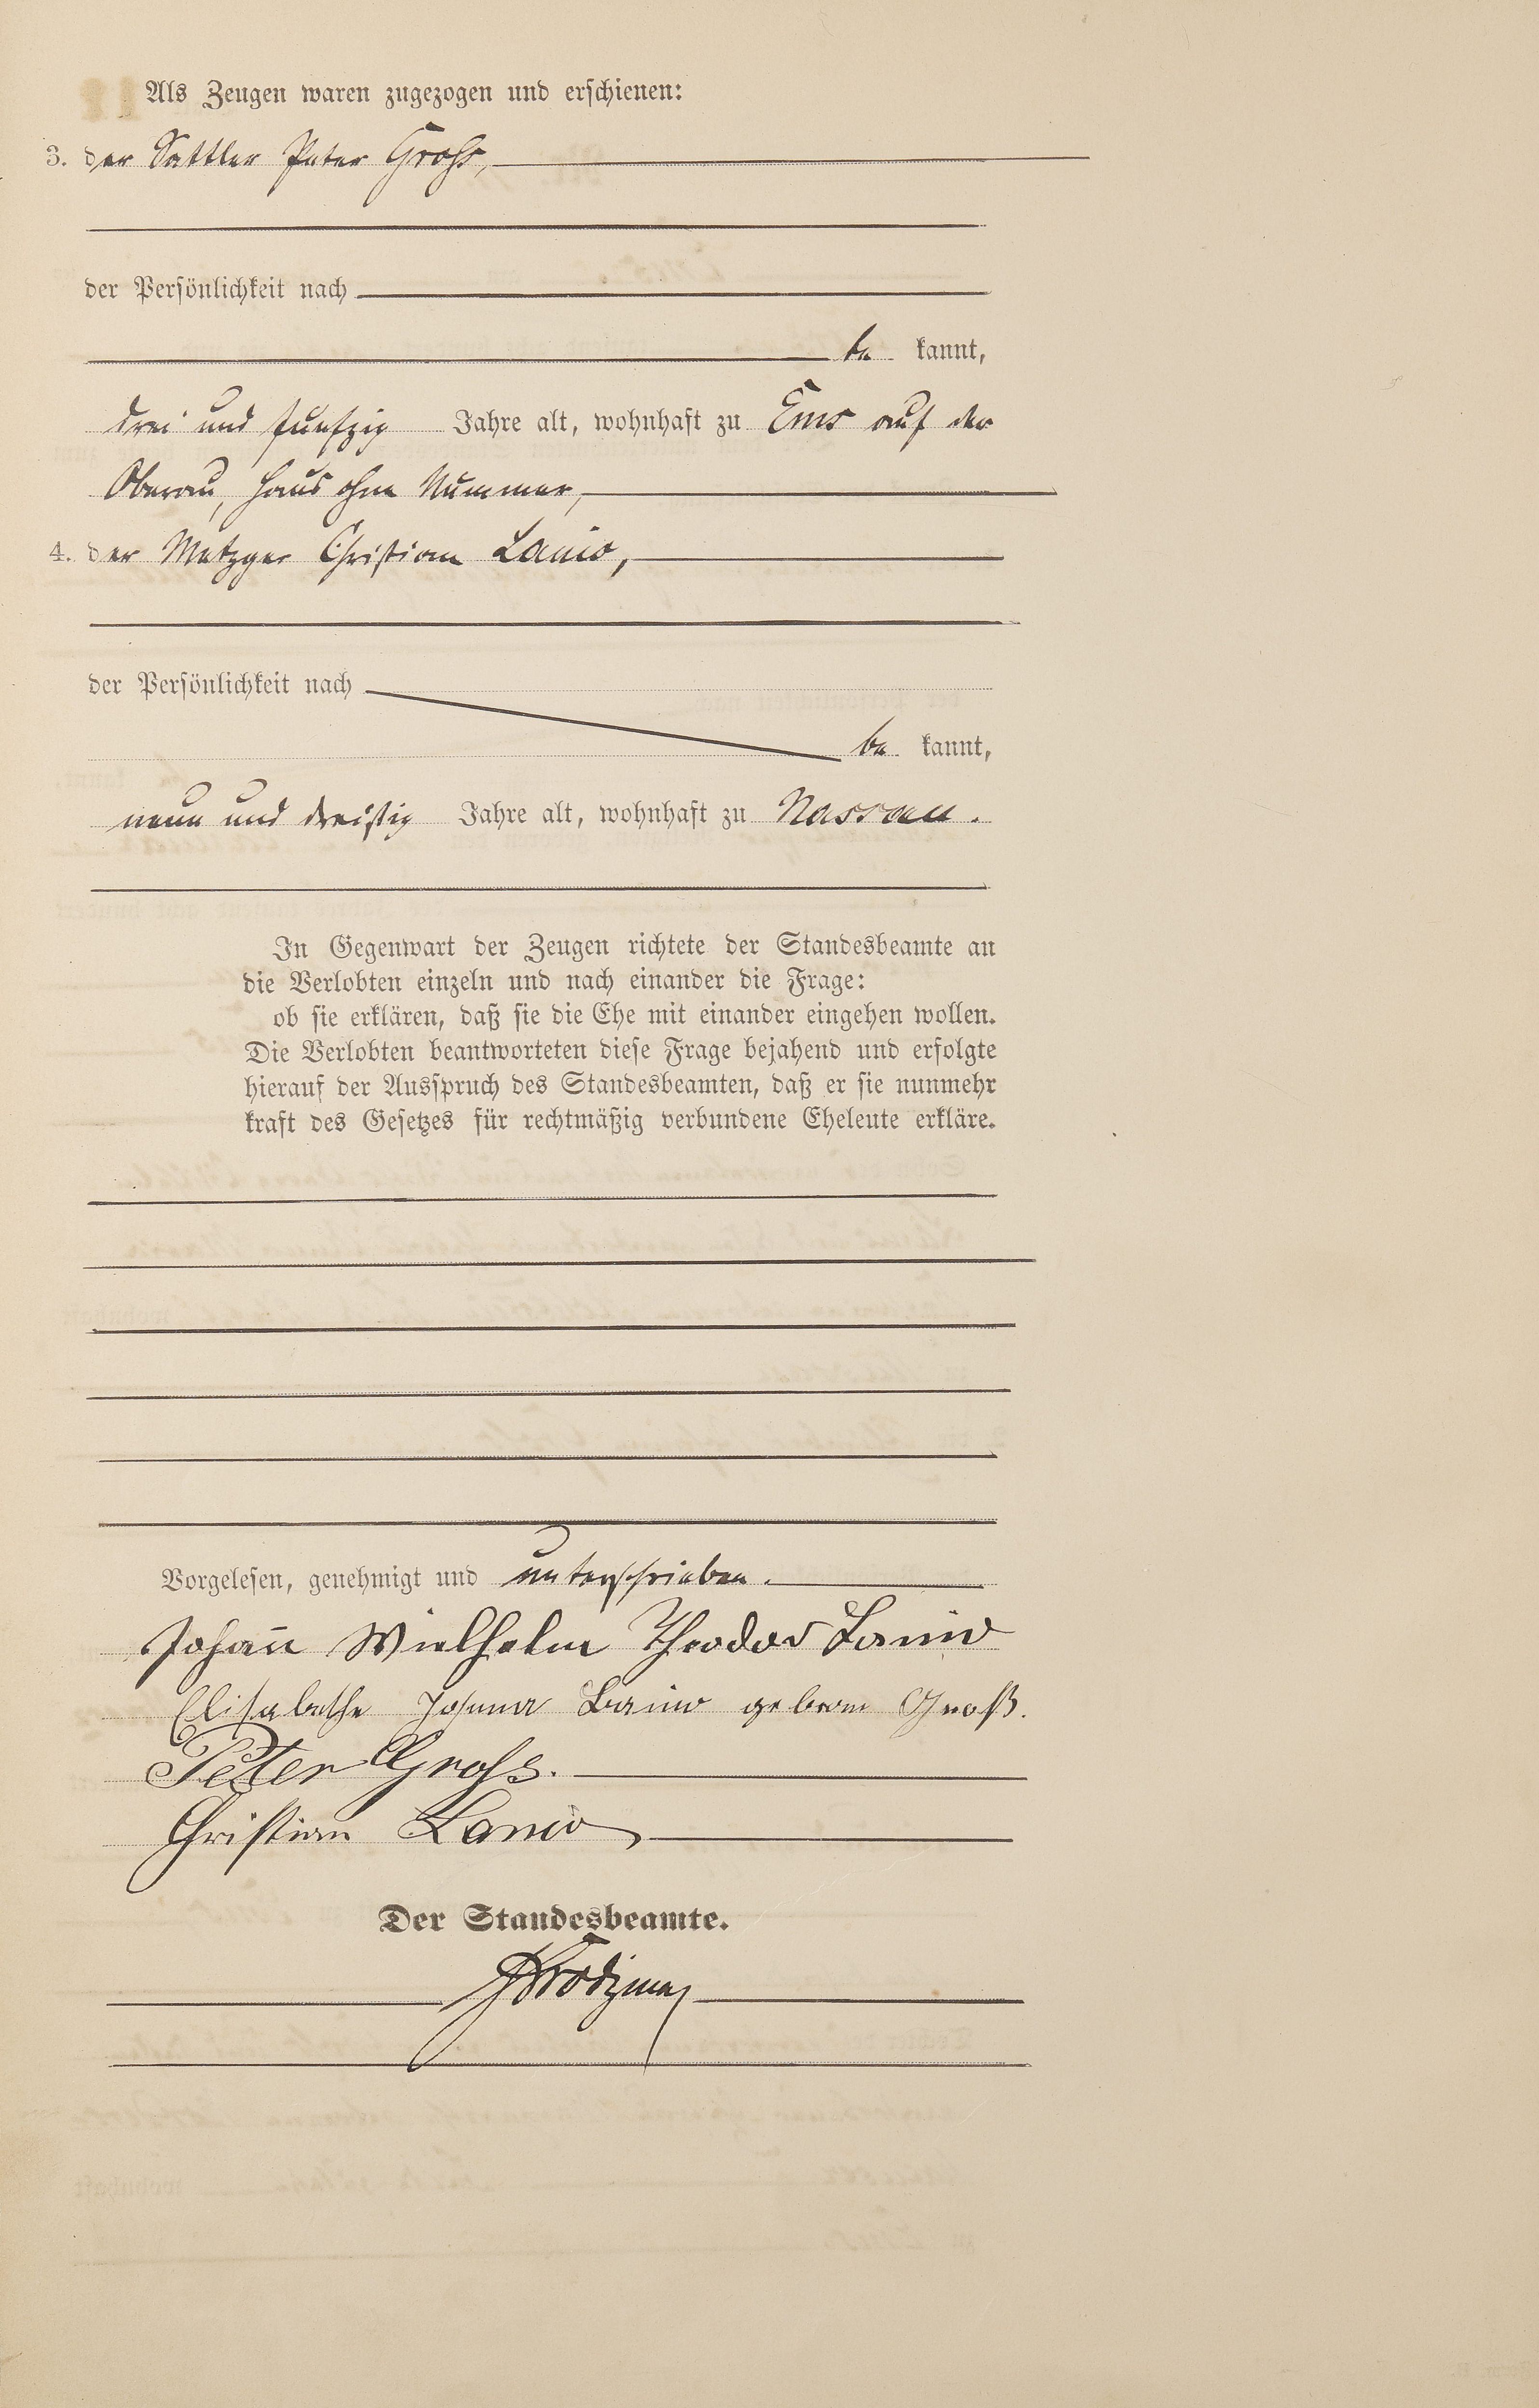 Als Zeugen waren zugezogen und erschienen:
3. der Sattler Peter Groß,
der Persönlichkeit nach
be kannt,
drei und fünfzig Jahre alt, wohnhaft zu Ems auf der
Oberau, Haus ohne Nummer,
4. der Metzger Christian Lanio,
der Persönlichkeit nach
be kannt,
neun und dreißig Jahre alt, wohnhaft zu Nassau.
In Gegenwart der Zeugen richtete der Standesbeamte an
die Verlobten einzeln und nach einander die Frage:
ob sie erklären, daß sie die Ehe mit einander eingehen wollen.
Die Verlobten beantworteten diese Frage bejahend und erfolgte
hierauf der Ausspruch des Standesbeamten, daß er sie nunmehr
kraft des Gesetzes für rechtmäßig verbundene Eheleute erkläre.
Vorgelesen, genehmigt und unterschrieben.
Johann Wielhelm Theodor Lanio
Elisabethe Lanio geboren Groß.
Peter Groß.
Christian Lanio
Der Standesbeamte.